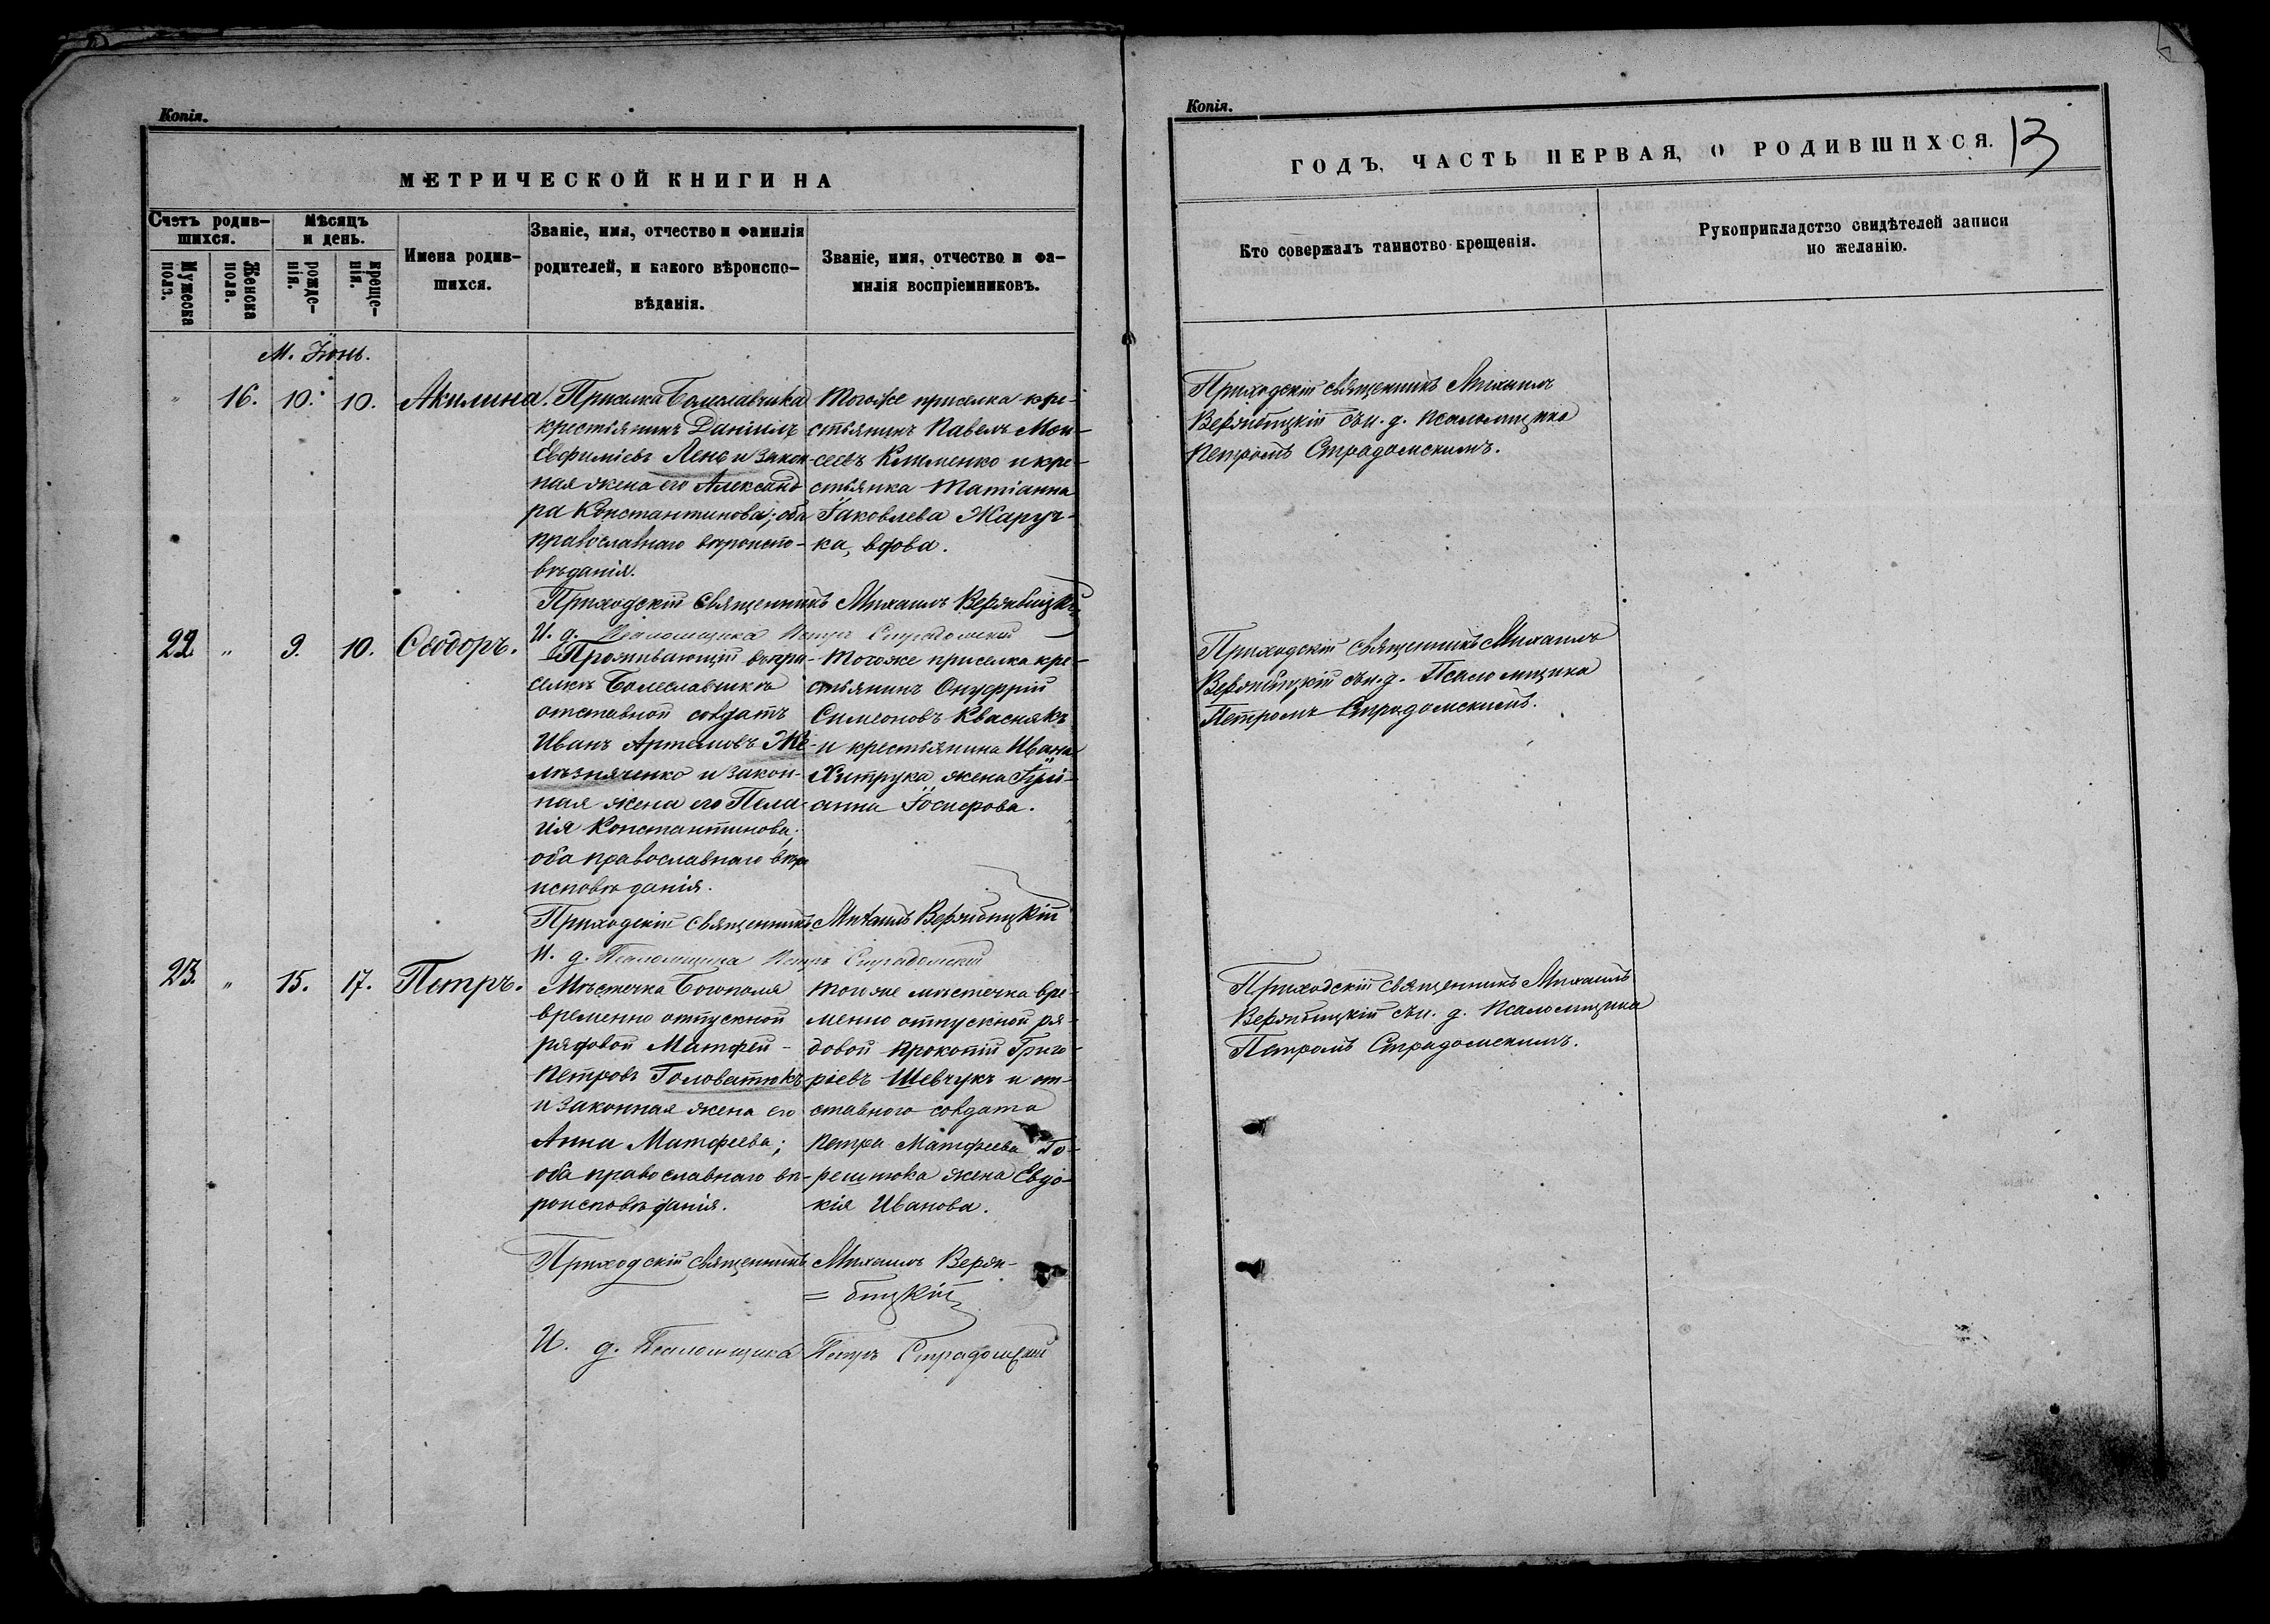 Копія.
МЕТРИЧЕСКОЙ КНИГИ НА
Счетъ родив-
шихся.
Мѣсяцъ
и день.
Мужеска
пола.
Женска
пола.
рожде-
нія.
креще-
нія.
Имена родив-
шихся.
Званіе, имя, отчество и фамилія
родителей, и какого вѣроиспо-
вѣданія.
Званіе, имя, отчество и фа-
милія воспріемниковъ.
М. Іюнь.
" 16. 10. 10. Акилина.
Приселка Болеславчика
крестьянинъ Даніилъ
Евфиміевъ Лень и закон-
ная жена его Александ
ра Константинова; оба
православнаго вѣроиспо-
вѣданія.
Тогоже приселка кре-
стьянинъ Павелъ Мои-
сеевъ Клименко и кре-
стьянка Татіанна
Іаковлева Жаруч-
ка, вдова.
Приходскій священникъ Михаилъ Вержбицкій
И. д. Псаломщика Петръ Страдомскій
22. " 9. 10. Ѳеодоръ.
Проживающій въ при-
селкѣ Болеславчикѣ
отставной солдатъ
Иванъ Артемовъ Же-
лѣзняченко и закон-
ная жена его Пела-
гія Константинова;
оба православнаго вѣро
исповѣданія.
Тогоже приселка кре-
стьянинъ Онуфрій
Симеоновъ Кваснякъ
и крестьянина Ивана
Хитрука жена Іулі-
анна Іосифова.
Приходскій священникъ Михаилъ Вержбицкій
И. д. Псаломщика Петръ Страдомскій
23. " 15. 17. Петръ.
Мѣстечка Богополя
временно отпускной
рядовой Матфей
Петровъ Головатюкъ
и законная жена его
Анна Матфеева;
оба православнаго вѣ-
роисповѣданія.
тогоже мѣстечка вре-
менно отпускной ря-
довой Прокопій Григо-
ріевъ Шевчукъ и от-
ставного солдата
Петра Матфеева Го-
решнюка жена Евдо-
кія Иванова.
Приходскій священникъ Михаилъ Верж-
= бицкій
И. д. Псаломщика Петръ Страдомскій
Копія.
ГОДЪ, ЧАСТЬ ПЕРВАЯ, О РОДИВШИХСЯ. 13
Кто совержалъ таинство крещенія.
Рукоприкладство свидѣтелей записи
по желанію.
Приходскій священникъ Михаилъ
Вержбицкій съ и. д. псаломщика
Петромъ Страдомскимъ.
Приходскій священникъ Михаилъ
Вержбицкій съ и. д. Псаломщика
Петромъ Страдомскимъ.
Приходскій священникъ Михаилъ
Вержбицкій съ и. д. Псаломщика
Петромъ Страдомскимъ.